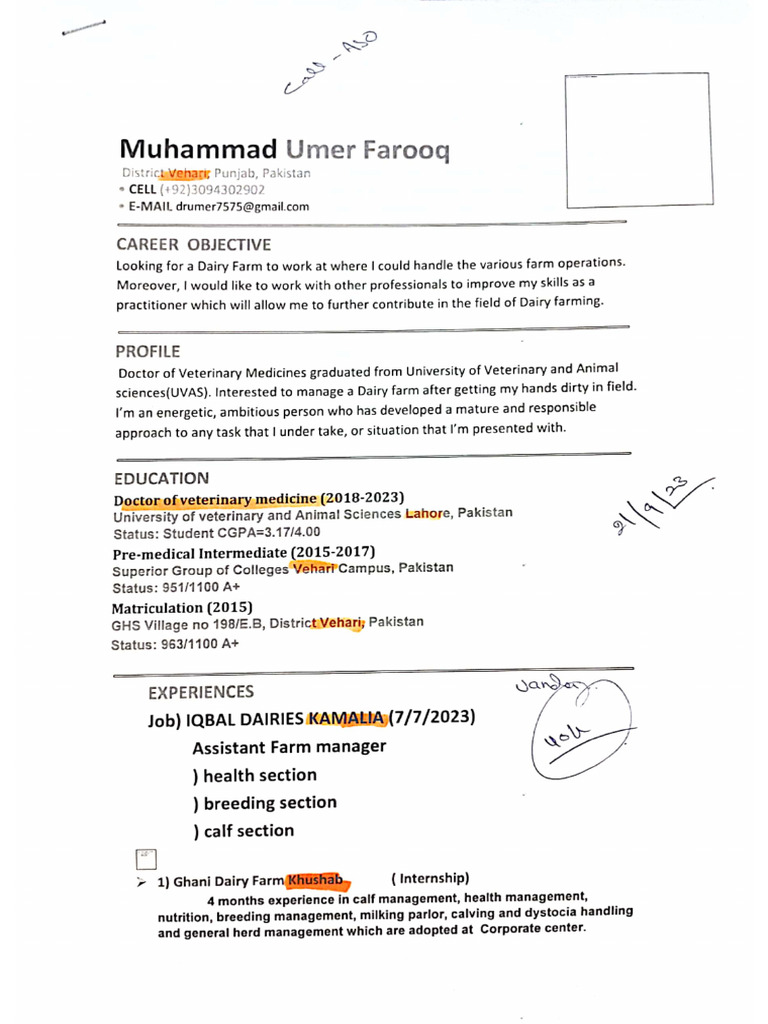 Call - ASO
Muhammad Umer Farooq
District Vehari, Punjab, Pakistan
• CELL (+92)3094302902
• E-MAIL drumer7575@gmail.com
CAREER OBJECTIVE
Looking for a Dairy Farm to work at where I could handle the various farm operations.
Moreover, I would like to work with other professionals to improve my skills as a
practitioner which will allow me to further contribute in the field of Dairy farming.
PROFILE
Doctor of Veterinary Medicines graduated from University of Veterinary and Animal
sciences(UVAS). Interested to manage a Dairy farm after getting my hands dirty in field.
I'm an energetic, ambitious person who has developed a mature and responsible
approach to any task that I under take, or situation that I'm presented with.
EDUCATION
Doctor of veterinary medicine (2018-2023)
University of veterinary and Animal Sciences Lahore, Pakistan
Status: Student CGPA=3.17/4.00
21/9/23
Pre-medical Intermediate (2015-2017)
Superior Group of Colleges Vehari Campus, Pakistan
Status: 951/1100 A+
Matriculation (2015)
GHS Village no 198/E.B, District Vehari, Pakistan
Status: 963/1100 A+
EXPERIENCES
Job) IQBAL DAIRIES KAMALIA (7/7/2023)
Assistant Farm manager
) health section
) breeding section
) calf section
➢ 1) Ghani Dairy Farm Khushab ( Internship)
4 months experience in calf management, health management,
nutrition, breeding management, milking parlor, calving and dystocia handling
and general herd management which are adopted at Corporate center.